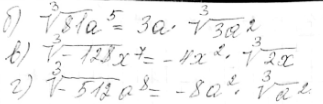 б) ∛81a⁵ = 3a · ∛3a²
в) ∛-128x⁷ = -4x² · ∛2x
г) ∛-512a⁸ = -8a² · ∛a²